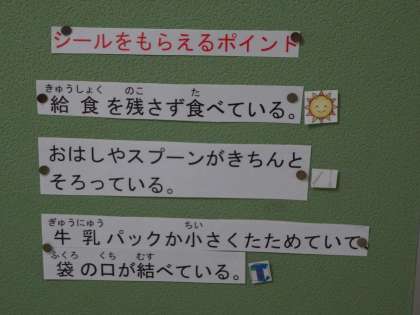 シールをもらえるポイント
きゅうしょく のこ た
給食を残さず食べている。
おはしやスプーンがきちんと
そろっている。
ぎゅうにゅう ちい
牛乳パックが小さくたためていて
ふくろ くち むす
袋の口が結べている。
T.